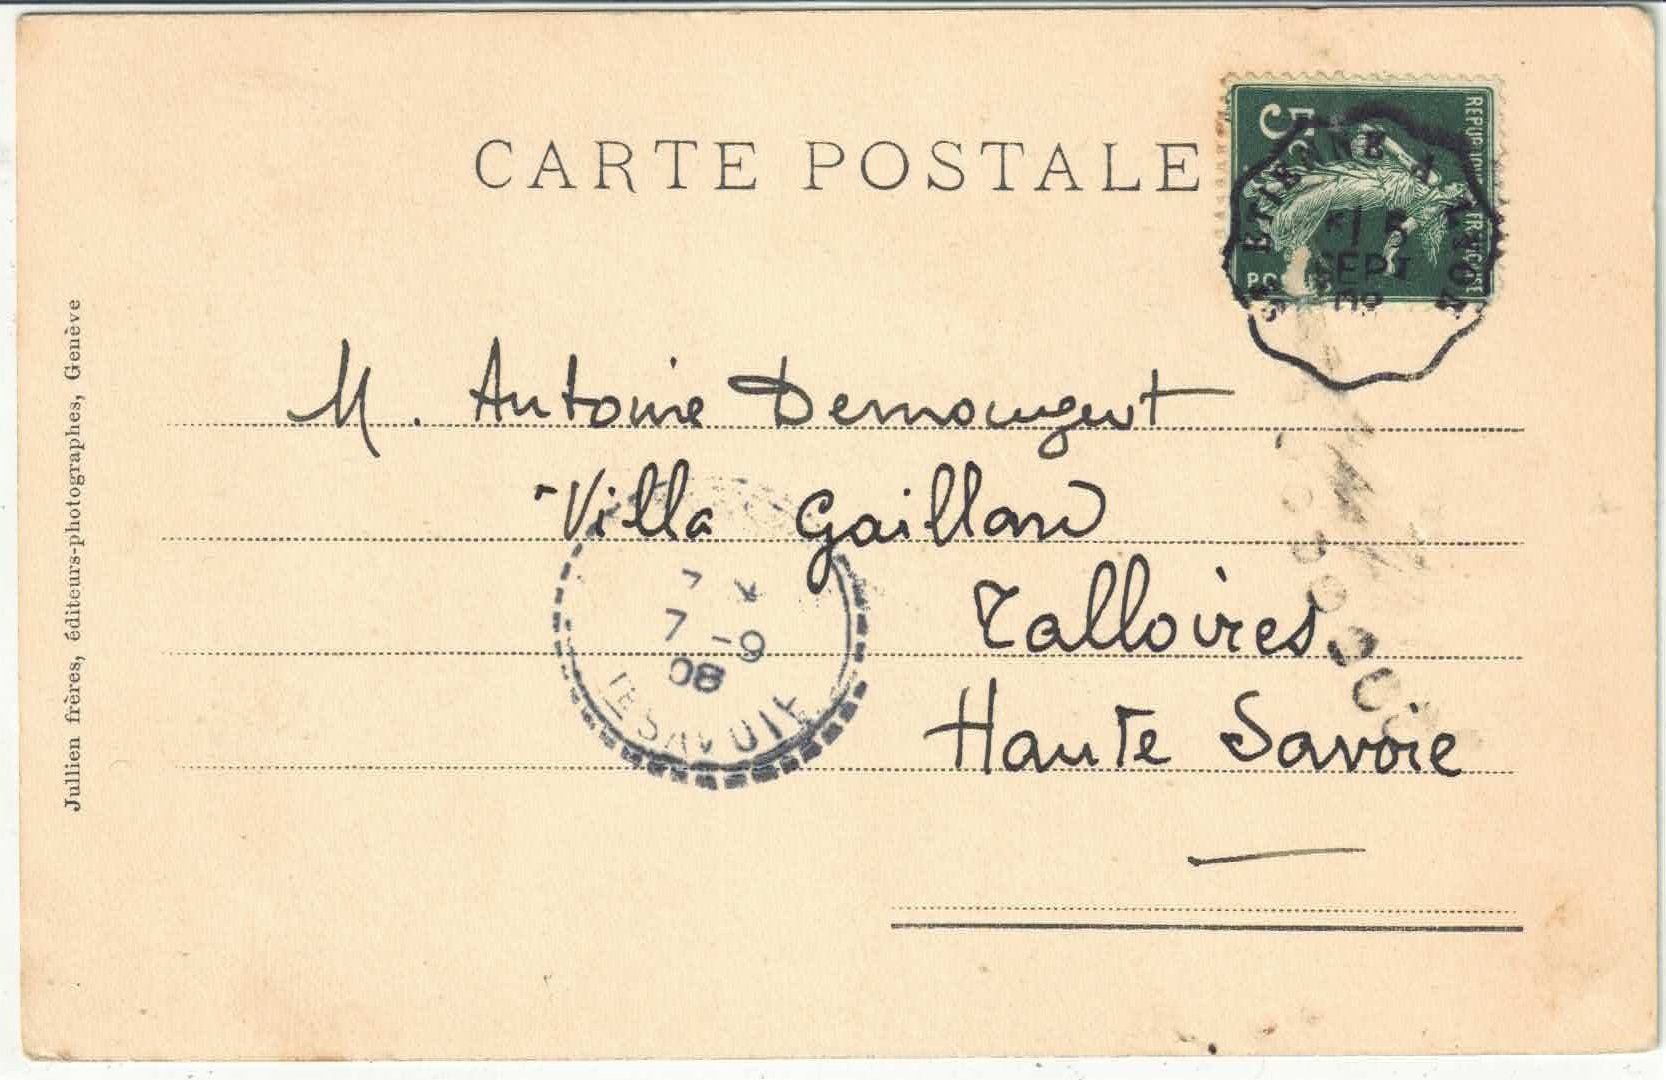 CARTE POSTALE
5c
REPUBLIQUE FRANÇAISE
ST ETIENNE A LYON
5
SEPT
08
M. Antoine Demougeot
Villa Gaillard
Talloires
Haute Savoie
7
7 - 9
08
HTE SAVOIE
Jullien frères, éditeurs-photographes, Genève